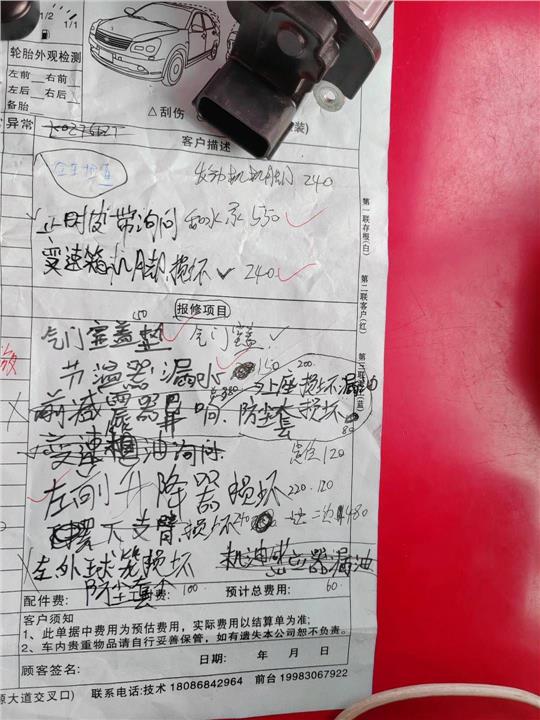 1/2 1/1
轮胎外观检测
左前 右前
左后 右后
备胎
△刮伤
装)
异常
客户描述
全车检查
发动机机脚 240
正时皮带询问 加水泵 550
变速箱机脚损坏 240
报修项目
150
气门室盖垫 气门室盖
节温器漏水 150 200
前减震器异响 380 上座损坏漏油
防尘套损坏 80
变速箱油询问 定位 120
左前升降器损坏 220. 120
下支臂损坏 240 480
左外球笼损坏 机油感应器漏油
防尘套
配件费: 费: 100 预计总费用: 60
客户须知
1、此单据中费用为预估费用,实际费用以结算单为准;
2、车内贵重物品请自行妥善保管,如有遗失本公司恕不负责。
顾客签名: 日期: 年 月 日
源大道交叉口) 联系电话:技术 18086842964 前台 19983067922
第一联存根(白)
第二联客户(红)